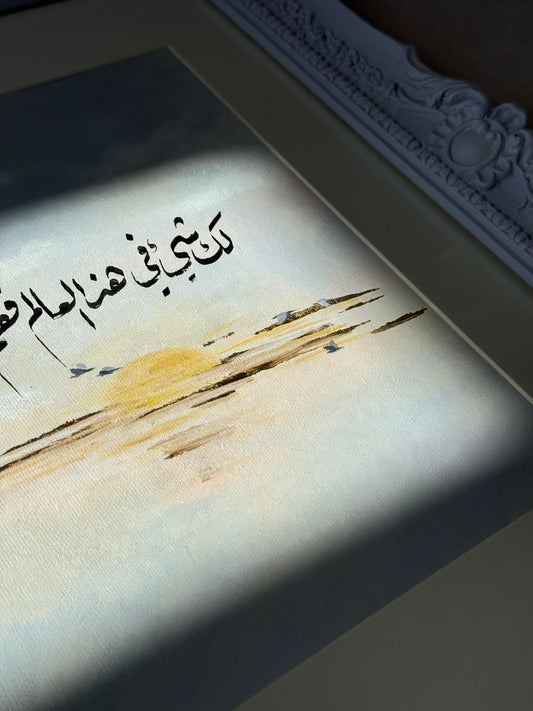 لك شيء في هذا العالم